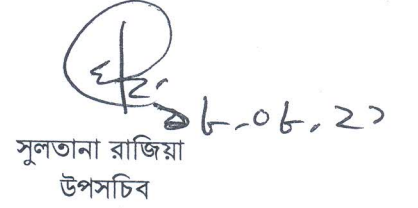 ০৮.০৮.২১
সুলতানা রাজিয়া
উপসচিব